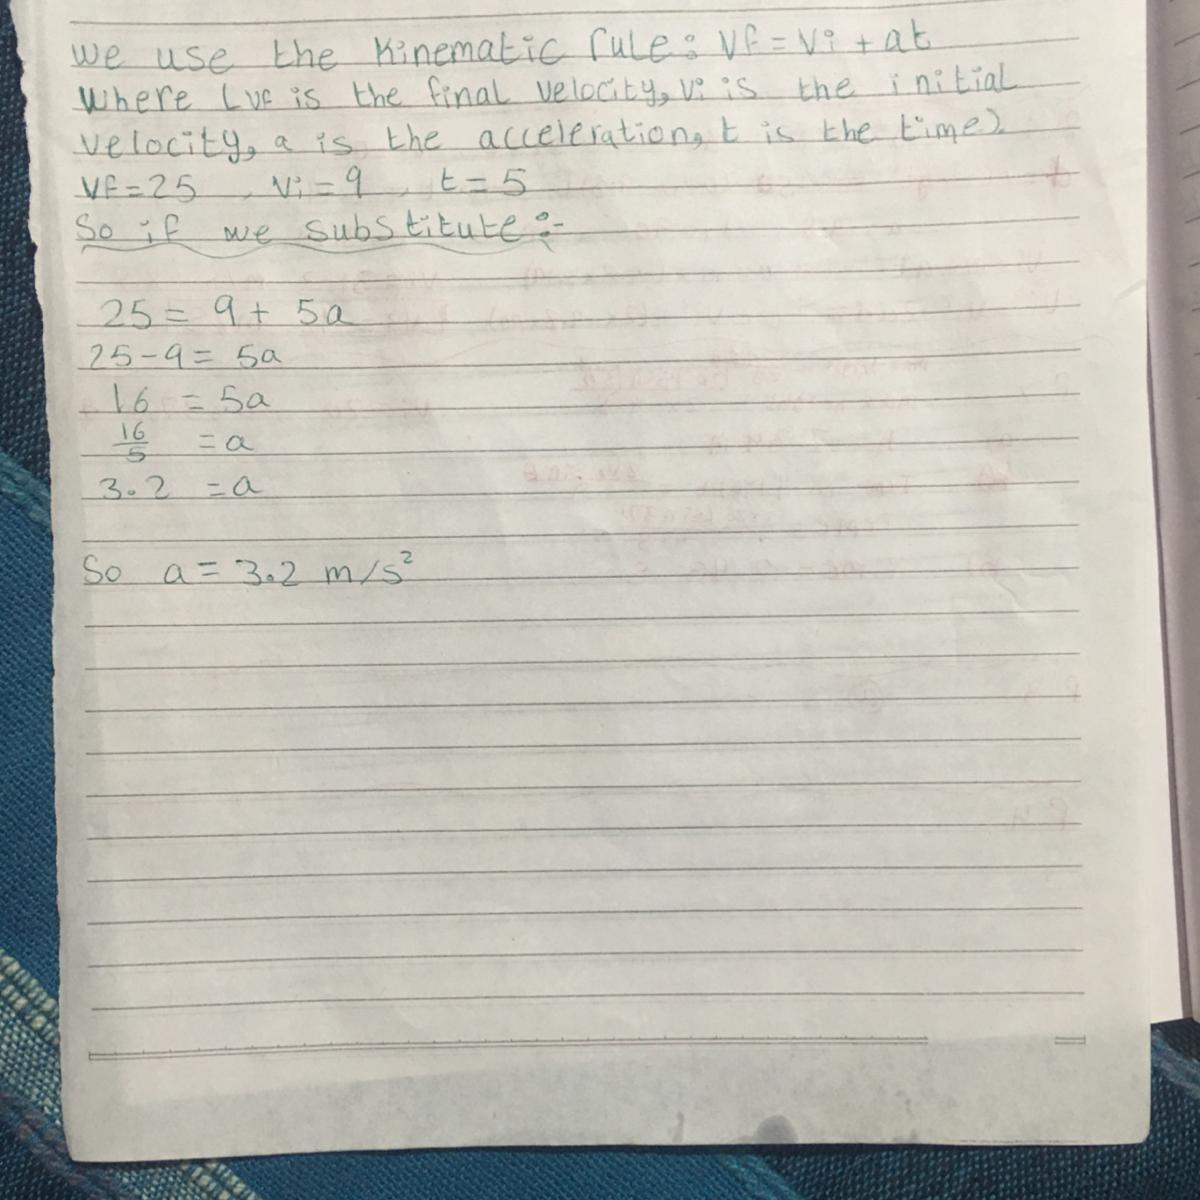 We use the Kinematic rule: Vf = Vi + at
Where (vf is the final velocity, vi is the initial
velocity, a is the acceleration, t is the time)
Vf = 25 , Vi = 9 , t = 5
So if we substitute :-
25 = 9 + 5a
25 - 9 = 5a
16 = 5a
16/5 = a
3.2 = a
So a = 3.2 m/s²